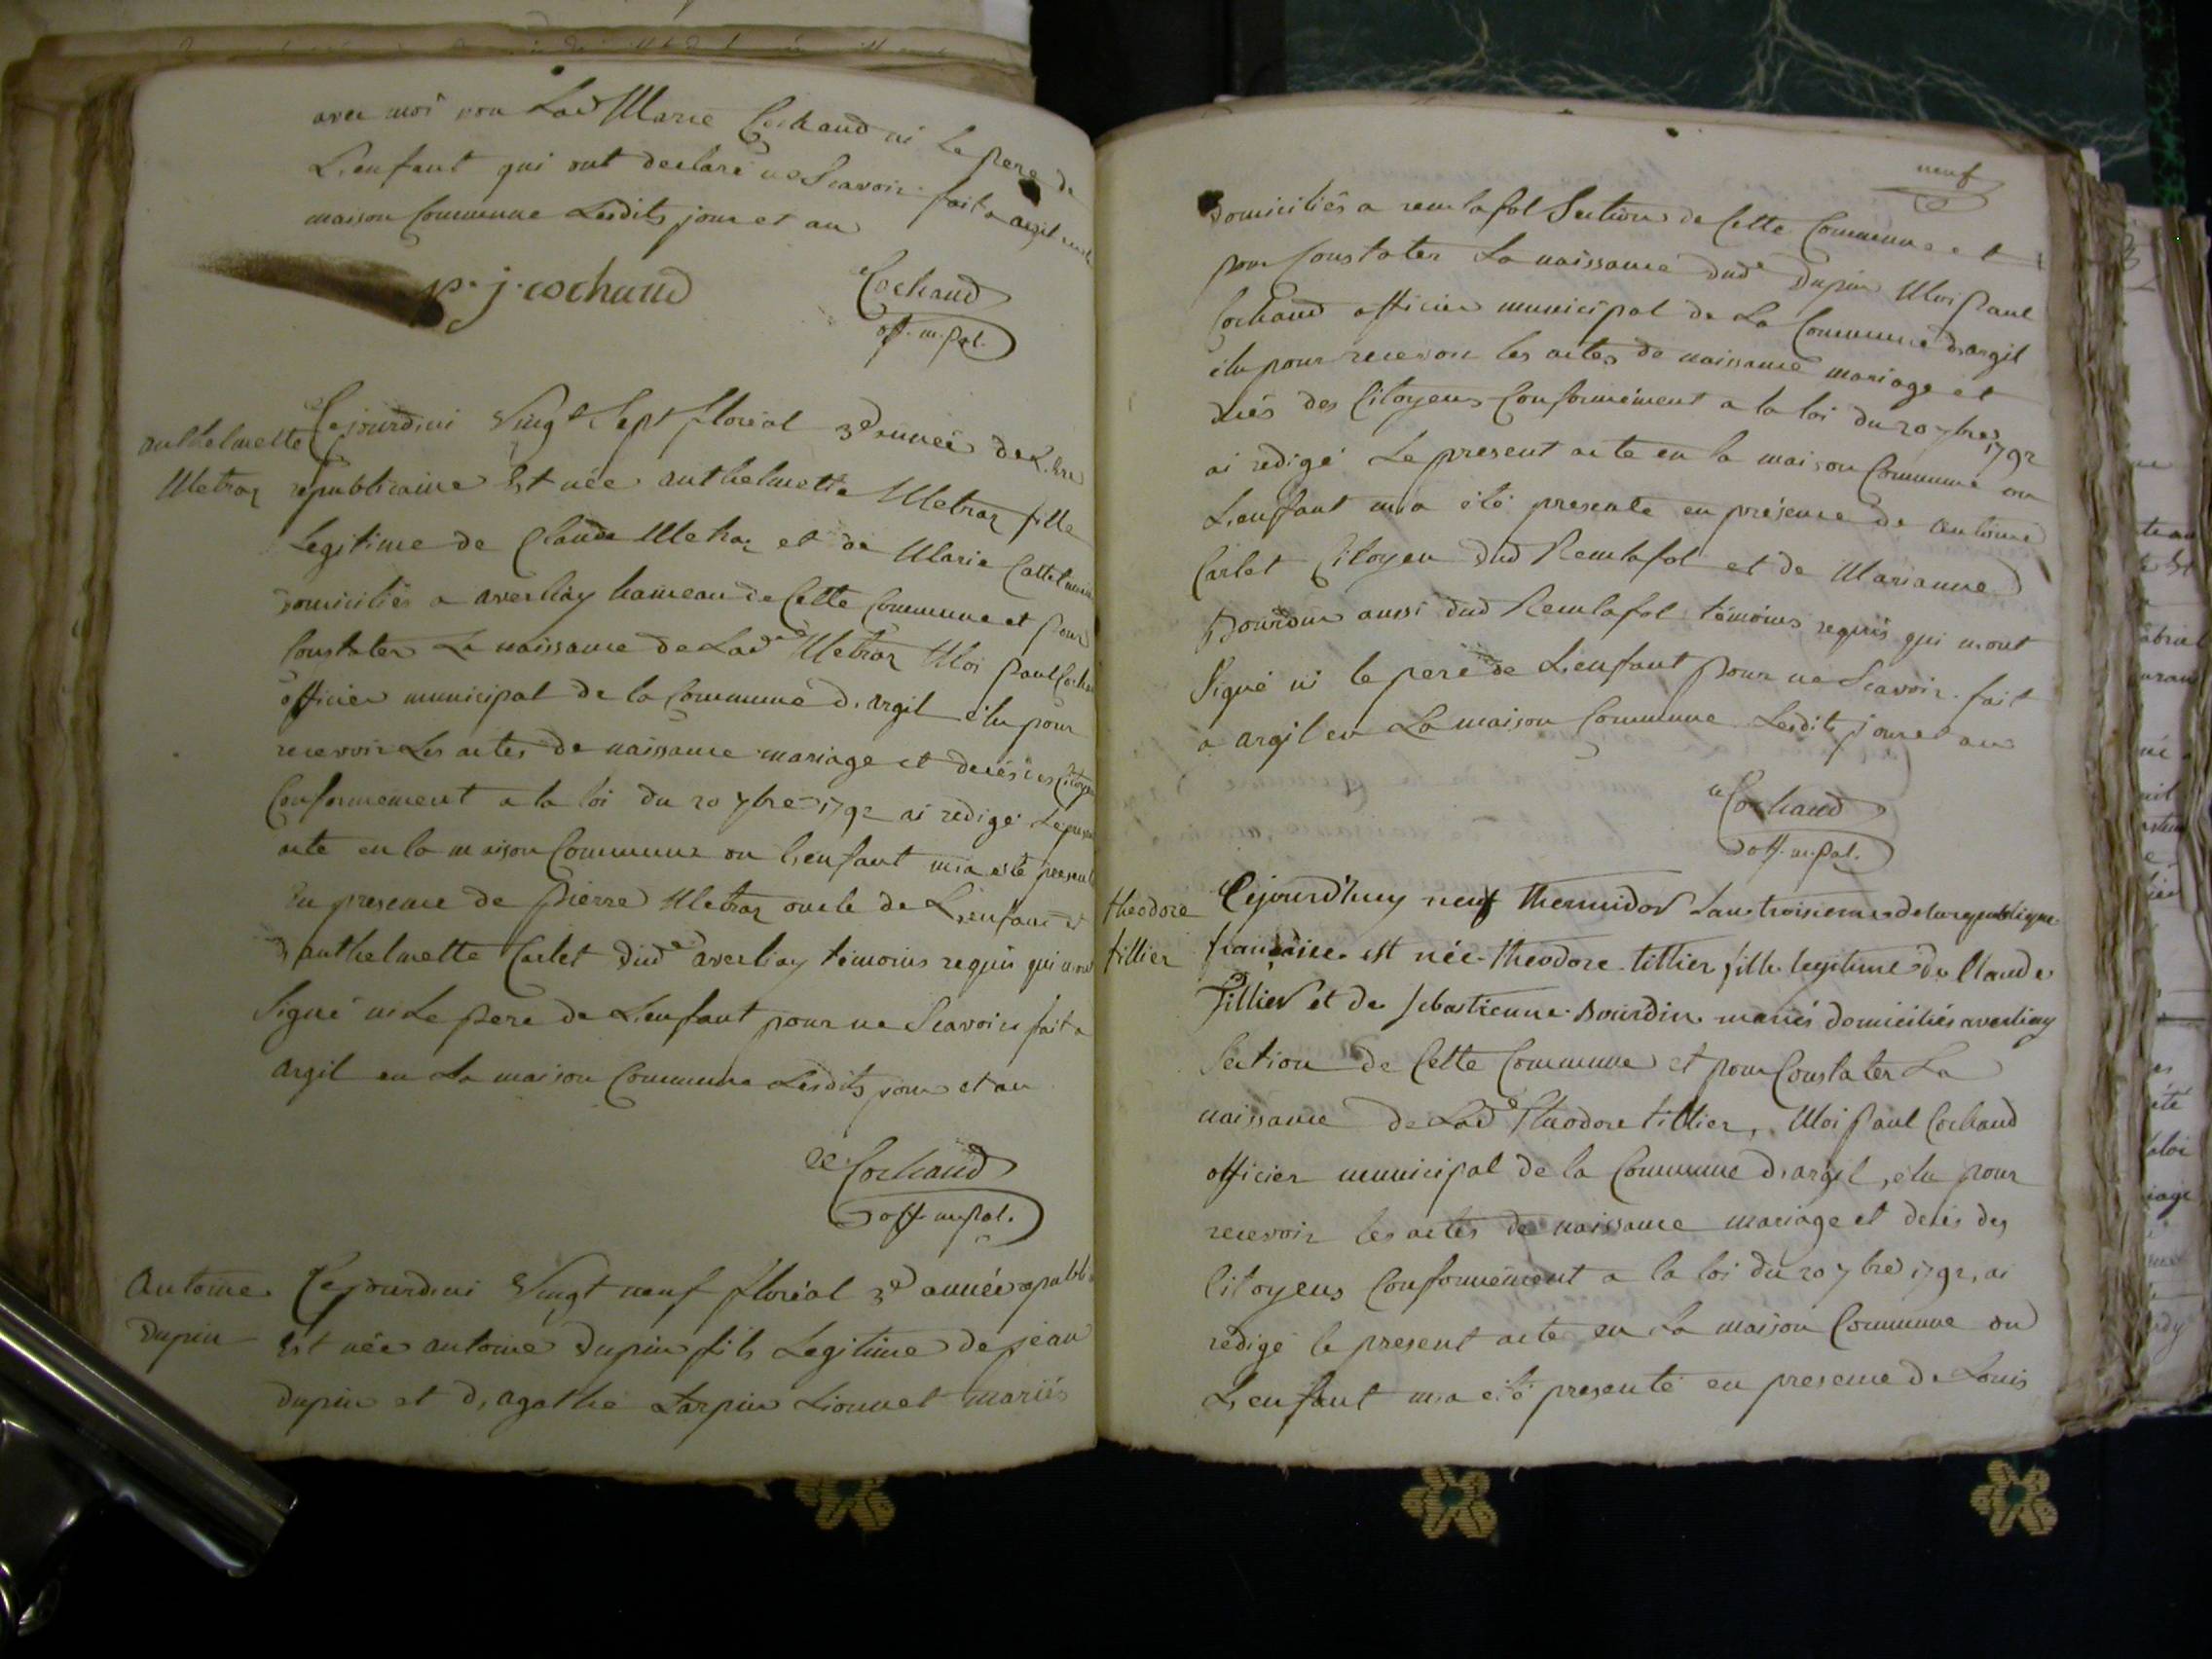 avec moi non Lad Marie Cochand ni le pere de
L'enfant qui ont declaré ne Scavoir fait a argil en la
maison Commune Lesdits jour et an
p. j. cochand
Cochand
off. m.pal.
anthelmette
Metraz
Cejourdui Vingt Sept floréal 3e année de L'ere
republicaine Est née anthelmette Metraz fille
Legitime de Claude Metraz et de Marie
domiciliés a averliay hameau de Cette Commune et pour
Constater La naissance de Lade Metraz Moi Paul Cochand
officier municipal de la Commune d'argil élu pour
recevoir Les actes de naissance mariage et decés des Citoyens
Conformement a la loi du 20 7bre 1792 ai redigé Le present
acte en la maison Commune ou l'enfant m'a esté presenté
En presence de Pierre Metraz oncle de L'enfant et
d'anthelmette Carlet dud averliay témoins requis qui n'ont
Signé ni Le pere de L'enfant pour ne Scavoir fait a
argil en La maison Commune Lesdits jour et an
Cochand
off. m.pal.
Antoine
Dupin
Cejourdui Vingt neuf floréal 3e année republi
Est née antoine Dupin fils Legitime de jean
dupin et d'agathe Larpin Lionnet mariés
neuf
Domiciliés a remlafol Section de Cette Commune et
pour Constater La naissance dud Dupin Moi Paul
Cochand officier municipal de La Commune d'argil
élu pour recevoir les actes de naissance mariage et
decés des Citoyens Conformément a la loi du 20 7bre 1792
ai redigé Le present acte en la maison Commune ou
L'enfant m'a été presenté en présence de antoine
Carlet Citoyen dud Remlafol et de Marianne
Bourdin aussi dud Remlafol témoins requis qui n'ont
Signé ni le pere de L'enfant pour ne Scavoir. fait
a argil en La maison Commune Lesdits jour et an
Cochand
off. m.pal.
théodore
tillier
Cejourd'huy neuf Thermidor Lan troisieme de la republique
francaise est née Théodore tillier fille legitime de Claude
Tillier et de Sebastienne Bourdin mariés domiciliés averliay
Section de Cette Commune et pour Constater La
naissance de Lade Theodore tillier, Moi Paul Cochand
officier municipal de la Commune d'argil, élu pour
recevoir les actes de naissance mariage et decés des
Citoyens Conformément a la loi du 20 7bre 1792, ai
redigé le present acte en La maison Commune ou
L'enfant m'a été presenté en presence de Louis